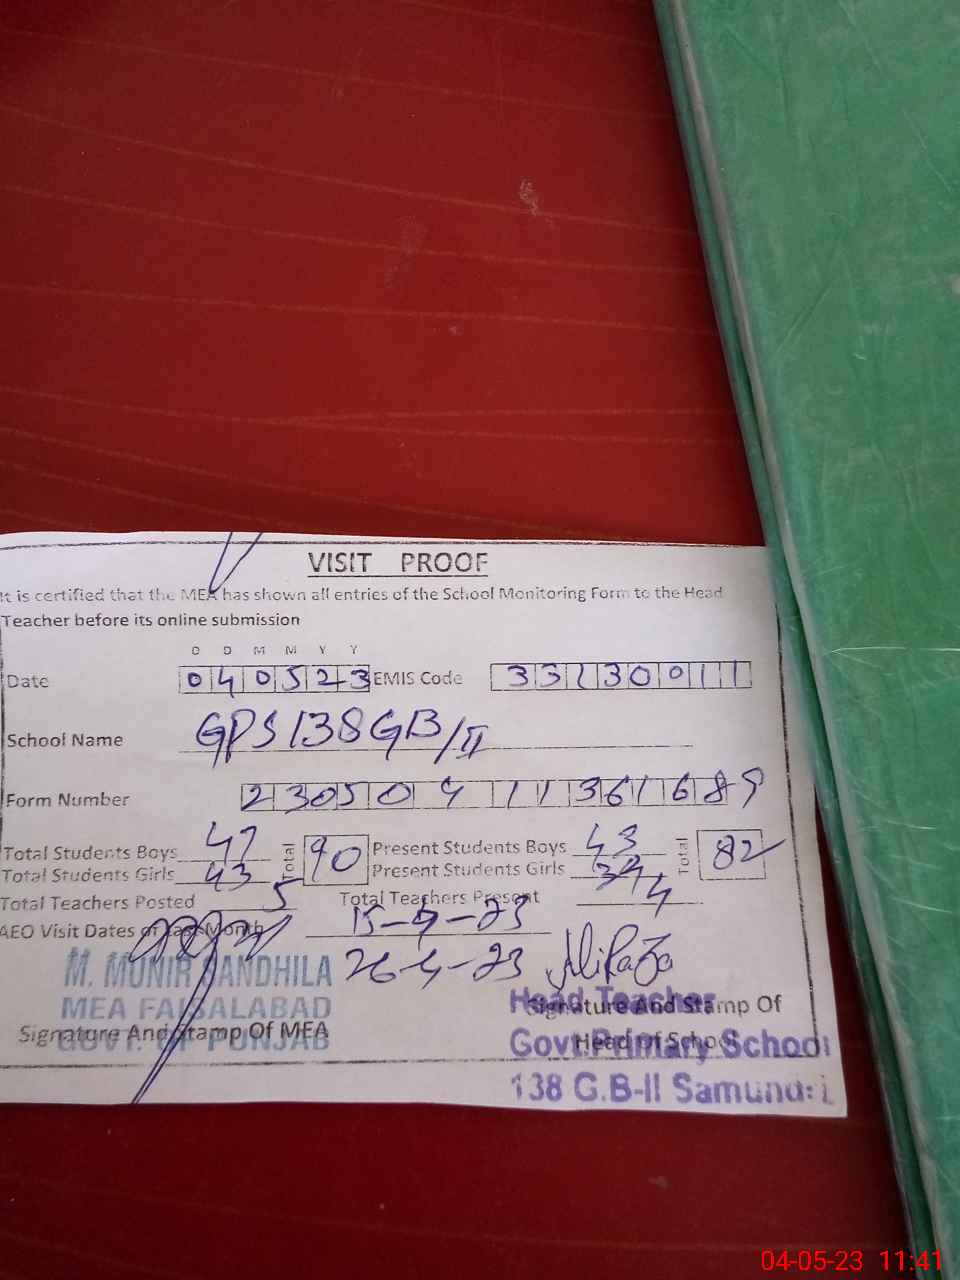 VISIT PROOF
It is certified that the MEA has shown all entries of the School Monitoring Form to the Head
Teacher before its online submission
D D M M Y Y
Date 040523 EMIS Code 33130011
School Name GPS 138 GB/II
Form Number 230504 11361689
Total Students Boys 47 Total 90 Present Students Boys 43 Total 82
Total Students Girls 43 Present Students Girls 39
Total Teachers Posted 5 Total Teachers Present 4
AEO Visit Dates of Last Month 15-4-23
26-4-23 Ali Raza
M. MUNIR GANDHILA
MEA FAISALABAD
GOVT. OF PUNJAB
Signature And Stamp Of MEA
Signature And Stamp Of
Head Of School
Head Teacher
Govt. Primary School
138 G.B-II Samundri
04-05-23 11:41